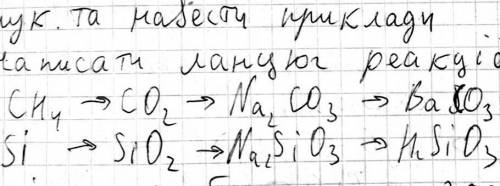 та навести приклади
написати ланцюг реакцій
CH₄ → CO₂ → Na₂CO₃ → BaCO₃
Si → SiO₂ → Na₂SiO₃ → H₂SiO₃